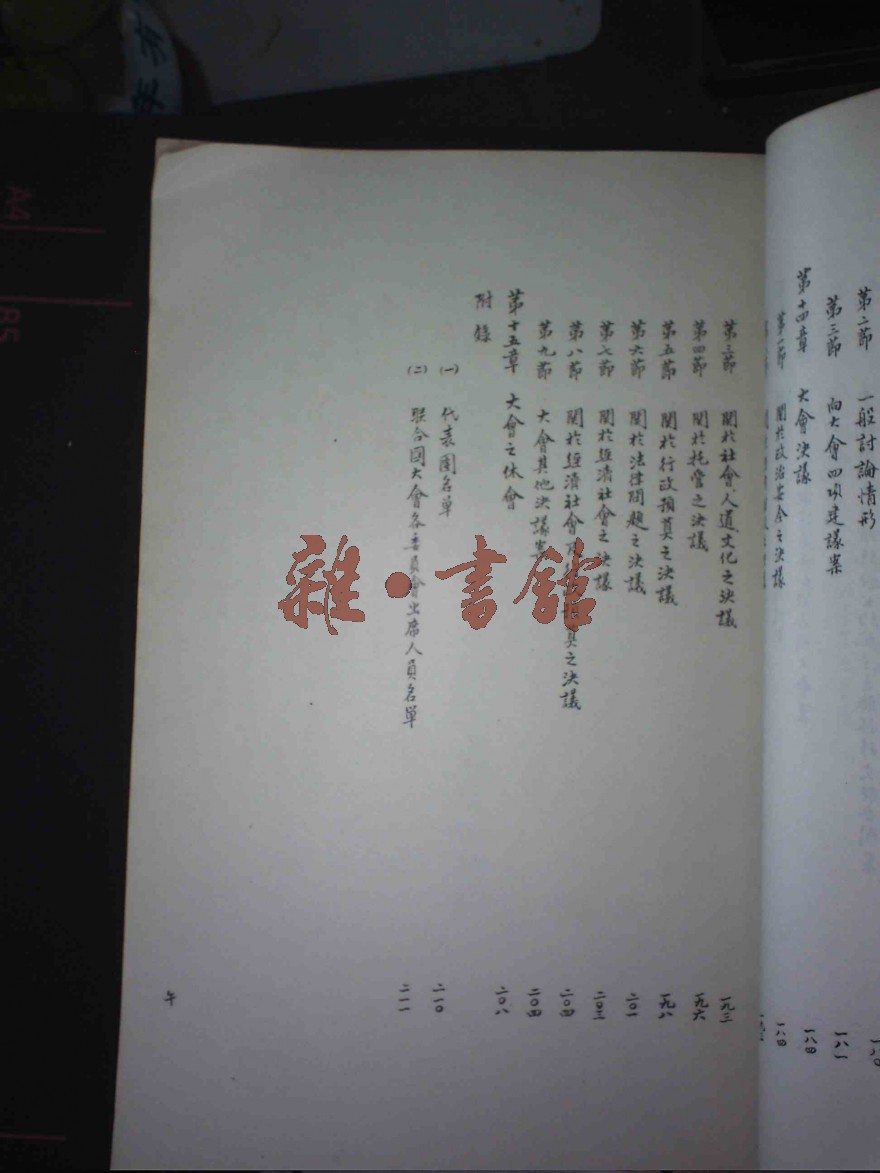 第二節 一般討論情形
第三節 向大會四項建議案 一八一
第十四章 大會決議 一八四
第一節 關於政治安全之決議 一八四
第三節 關於社會人道文化之決議 一九三
第四節 關於托管之決議 一九六
第五節 關於行政預算之決議 一九八
第六節 關於法律問題之決議 二〇一
第七節 關於經濟社會之決議 二〇三
第八節 關於經濟社會 算之決議 二〇四
第九節 大會其他決議案 二〇四
第十五章 大會之休會 二〇八
附錄
(一) 代表團名單 二一〇
(二) 联合國大會各委員會出席人員名單 二一一
午
雜·書館
A4
B5